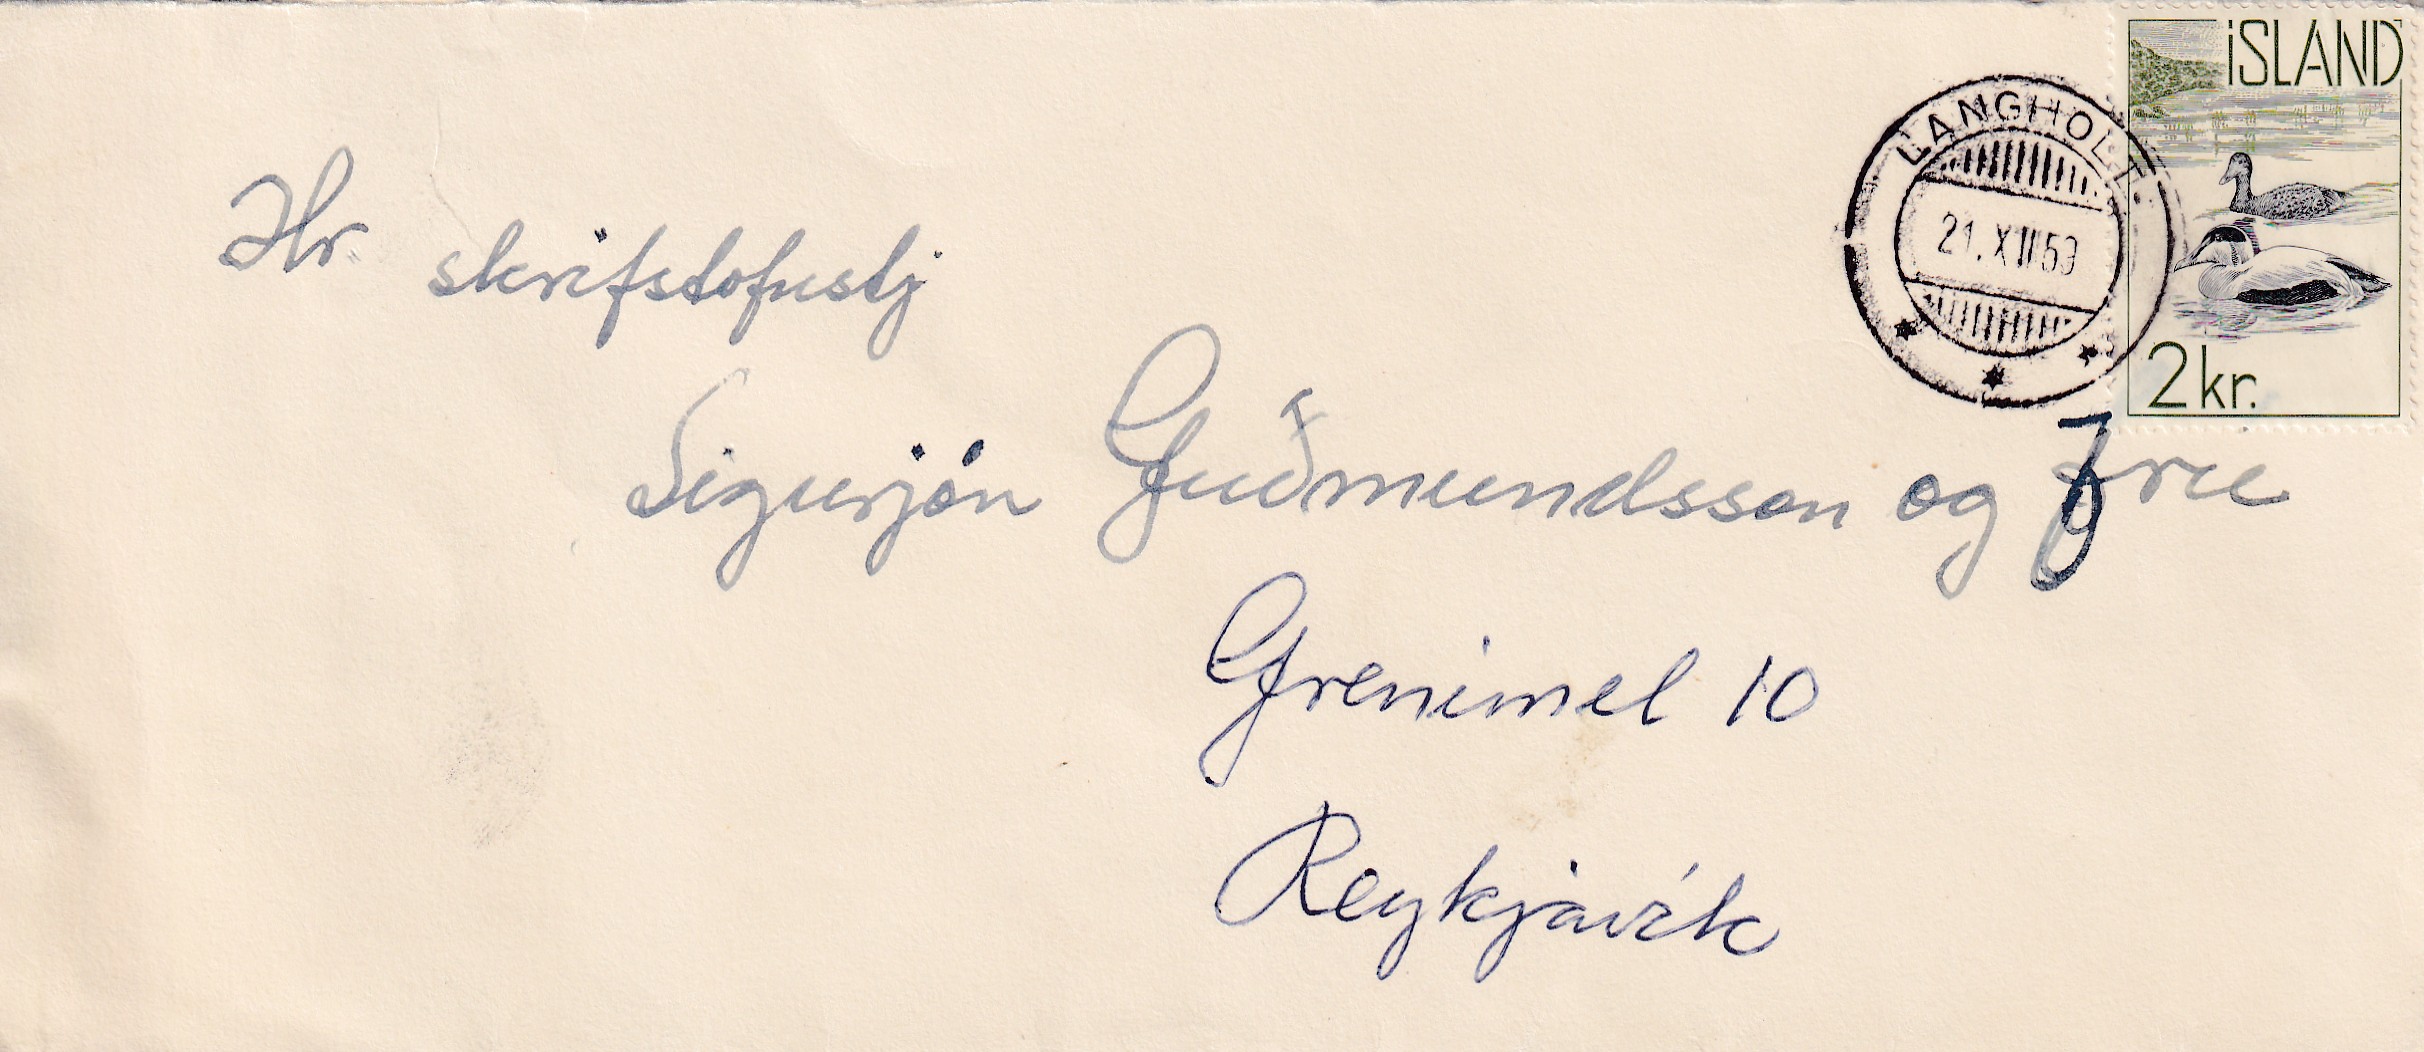 ÍSLAND
LANGHOLT
21.XII 59
2kr.
Hr. skrifstofustj
Sigurjón Guðmundsson og frú
Grenimel 10
Reykjavík